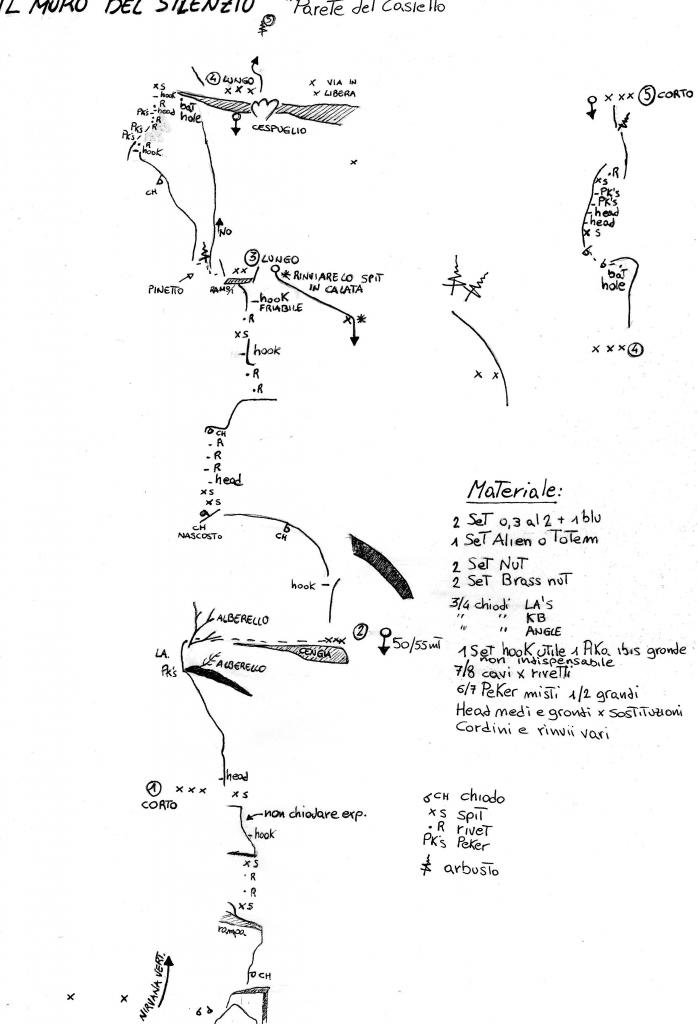 IL MURO DEL SILENZIO "Parete del Casiello
5
4 LUNGO
x VIA IN
x LIBERA
x S
hook
R
head
R
PK's
PK's
PK's
R
hook
bat
hole
CESPUGLIO
CH
NO
PINETTO
RAMPA
3 LUNGO
* RINVIARE LO SPIT
IN CALATA
hook
FRIABILE
R
x S
hook
R
R
x *
CH
R
R
R
head
x S
x S
CH
NASCOSTO
CH
hook
ALBERELLO
2
50/55mt
CENGIA
LA.
PK's
ALBERELLO
head
1 x x x
CORTO
x S
non chiodare exp.
hook
x S
R
R
x S
rampa
CH
NIRVANA VERT.
x x x 5 CORTO
R
x S
PK's
PK's
head
head
x S
bat
hole
x x x 4
Materiale:
2 Set 0,3 al 2 + 1 blu
1 Set Alien o Totem
2 Set Nut
2 Set Brass nut
3/4 chiodi LA's
" " KB
" " ANGLE
1 Set hook utile 1 Pika ibis grande
non indispensabile
7/8 cavi x rivetti
6/7 Peker misti 1/2 grandi
Head medi e grandi x sostituzioni
Cordini e rinvii vari
CH chiodo
x S spit
. R rivet
PK's Peker
arbusto